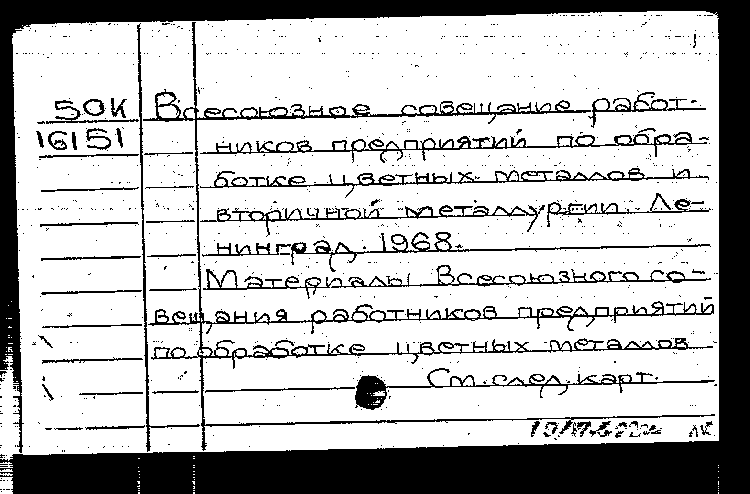 50К Всесоюзное совещание работ-
16151 ников предприятий по обра-
ботке цветных металлов и
вторичной металлургии. Ле-
нинград. 1968.
Материалы Всесоюзного со-
вещания работников предприятий
по обработке цветных металлов
См. след. карт.